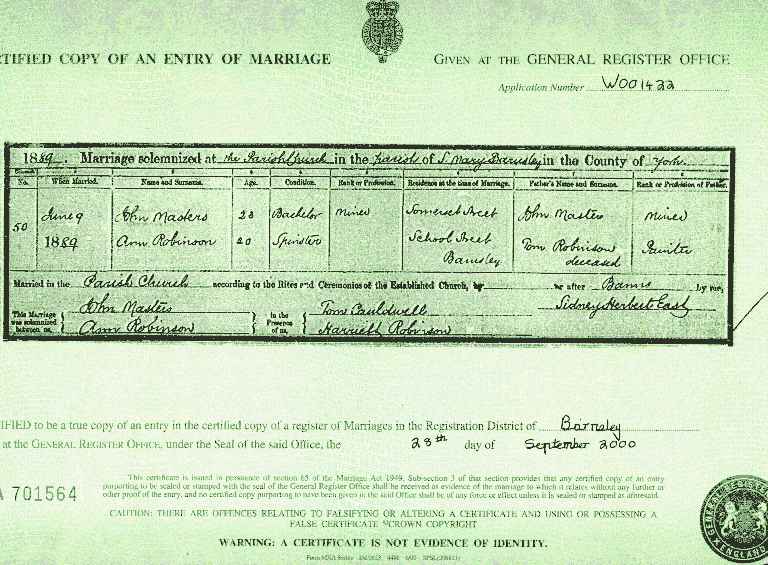 TIFIED COPY OF AN ENTRY OF MARRIAGE
GIVEN AT THE GENERAL REGISTER OFFICE
Application Number W001422
1889. Marriage solemnized at the Parish Church in the parish of S. Mary Barnsley in the County of York.
No. When Married. Name and Surname. Age. Condition. Rank or Profession. Residence at the time of Marriage. Father's Name and Surname. Rank or Profession of Father.
50 June 9 John Masters 23 Bachelor Miner Somerset Street John Masters Miner
1889 Ann Robinson 20 Spinster School Street Tom Robinson Painter
Barnsley deceased
Married in the Parish Church according to the Rites and Ceremonies of the Established Church, by or after Banns by me,
This Marriage was solemnized between us, John Masters In the Presence of us, Tom Cauldwell Sidney Herbert East
Ann Robinson Harriett Robinson
IFIED to be a true copy of an entry in the certified copy of a register of Marriages in the Registration District of Barnsley
at the GENERAL REGISTER OFFICE, under the Seal of the said Office, the 28th day of September 2000
A 701564
This certificate is issued in pursuance of section 65 of the Marriage Act 1949. Sub-section 3 of that section provides that any certified copy of an entry
purporting to be sealed or stamped with the seal of the General Register Office shall be received as evidence of the marriage to which it relates without any further or
other proof of the entry, and no certified copy purporting to have been given in the said Office shall be of any force or effect unless it is sealed or stamped as aforesaid.
CAUTION: THERE ARE OFFENCES RELATING TO FALSIFYING OR ALTERING A CERTIFICATE AND USING OR POSSESSING A
FALSE CERTIFICATE ©CROWN COPYRIGHT
WARNING: A CERTIFICATE IS NOT EVIDENCE OF IDENTITY.
GENERAL REGISTER
ENGLAND